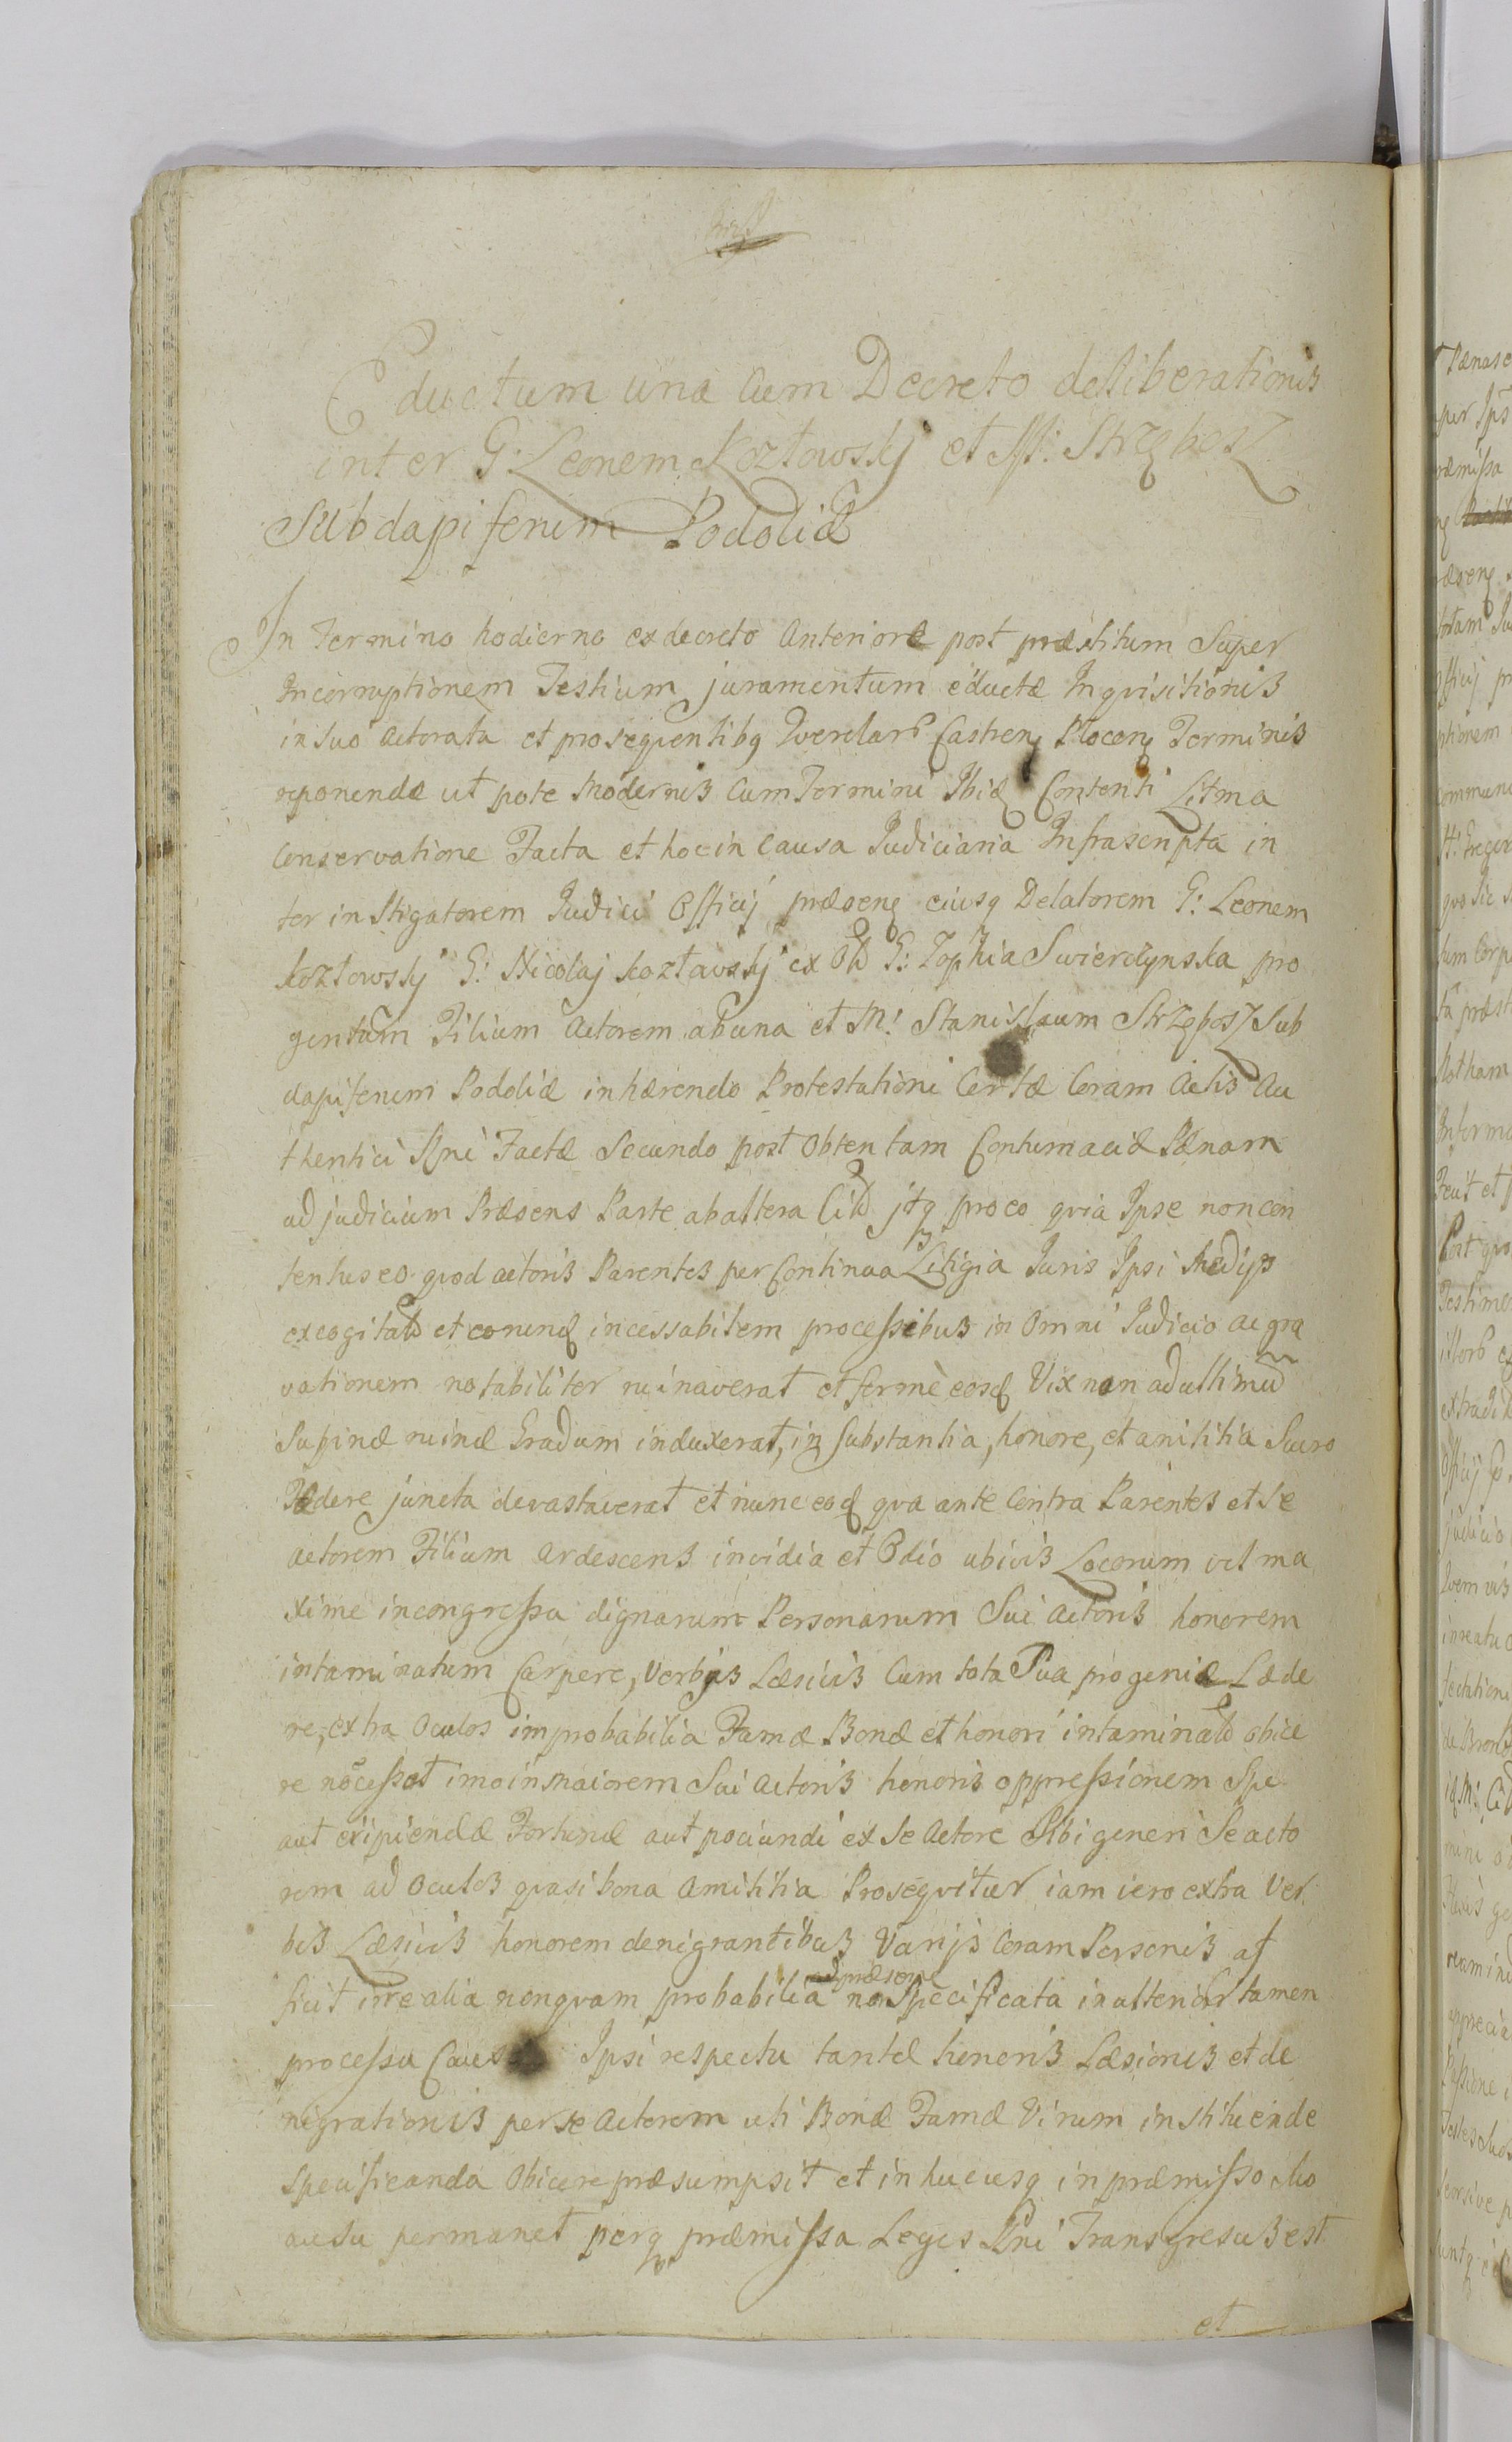 Eductum una Cum Decreto deliberationis
inter G: Leonem Kozłowskj et M: Strzębosz
Subdapiferum Podoliæ
In Termino hodierno ex decreto Anteriore post præstitum Super
Incorruptionem Testium juramentum eductæ Inqvisitionis
in suo actoratu et proseqventibq Qverelarũ Castren Plocen Terminis
reponendæ ut pote Modernis Cum Termini Ibid Contenti Litma
Conservatione Facta et hoc in Causa Judiciaria Infrascripta in
ter instigatorem Judicii Officij præsens eiusq Delatorem G: Leonem
Kozłowskj G: Nicolaj Kozłowskj ex G: Zophia Swierczynska pro
genitum Filium Actorem ab una et M: Stanislaum Strzębosz Sub
dapiferum Podoliæ inhærendo Protestationi Certæ Coram Actis Au
thentici Rgni Factæ Secundo post Obtentam Contumaciæ Pænam
ad judicium Præsens Parte ab altera Citũ jtq pro eo qvia Ipse non con
tentus eo qvod actoris Parentes per Continua Litigia Juris Ipsi Medijs
excogitatũ et eorund incessabilem processibus in Omni Judicio aggra
vationem notabiliter ruinaverat et fermè eosd Vix non ad ultimũ
Supinæ ruinæ Gradum induxerat, in substantia, honore, et amititia Sacro
Fædere juncta devastaverat et nunc ead qva ante Contra Parentes et Se
Actorem Filium Ardescens invidia et Odio ubivis Locorum vel ma
xime in congressu dignarum Personarum Sui Actoris honorem
intaminatum Carpere, Verbis Læsivis Cum tota Sua progeniæ Læde
re, extra Oculos improbabilia Famæ Bonæ et honori intaminatũ obice
re nõ cessat imo in Maiorem Sui Actoris honoris oppressionem Spe
aut eripiendæ Fortunæ aut pociundi ex Se Actore Sibi generi Se acto
rem ad Oculos qvasi bona Amititia Proseqvitur iam vero extra Ver
bis Læsivis honorem denigrantibus Varijs Coram Personis af
ficit irrealia nonqvam probabilia ad præsens non Specificata in ulteriori tamen
processu Causæ Ipsi respectu tantæ honoris Læsionis et de
nigrationis per se Actorem uti Bonæ Famæ Virum instituendæ
Specificanda Obicere præsumpsit et in hucusq in præmisso
ausu permanet perq præmissa Leges Rgni Transgresus est
et